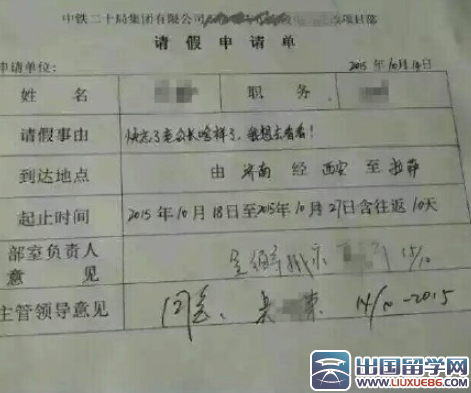 中铁二十局集团有限公司 项目部
请假申请单
申请单位: 2015年10月14日
姓名 职务
请假事由 快忘了老公长啥样了,我想去看看!
到达地点 由 济南 经 西安 至 拉萨
起止时间 2015年10月18日至2015年10月27日含往返10天
部室负责人意见 15/10
主管领导意见 同意. 14/10-2015
出国留学网
www.liuxue86.com